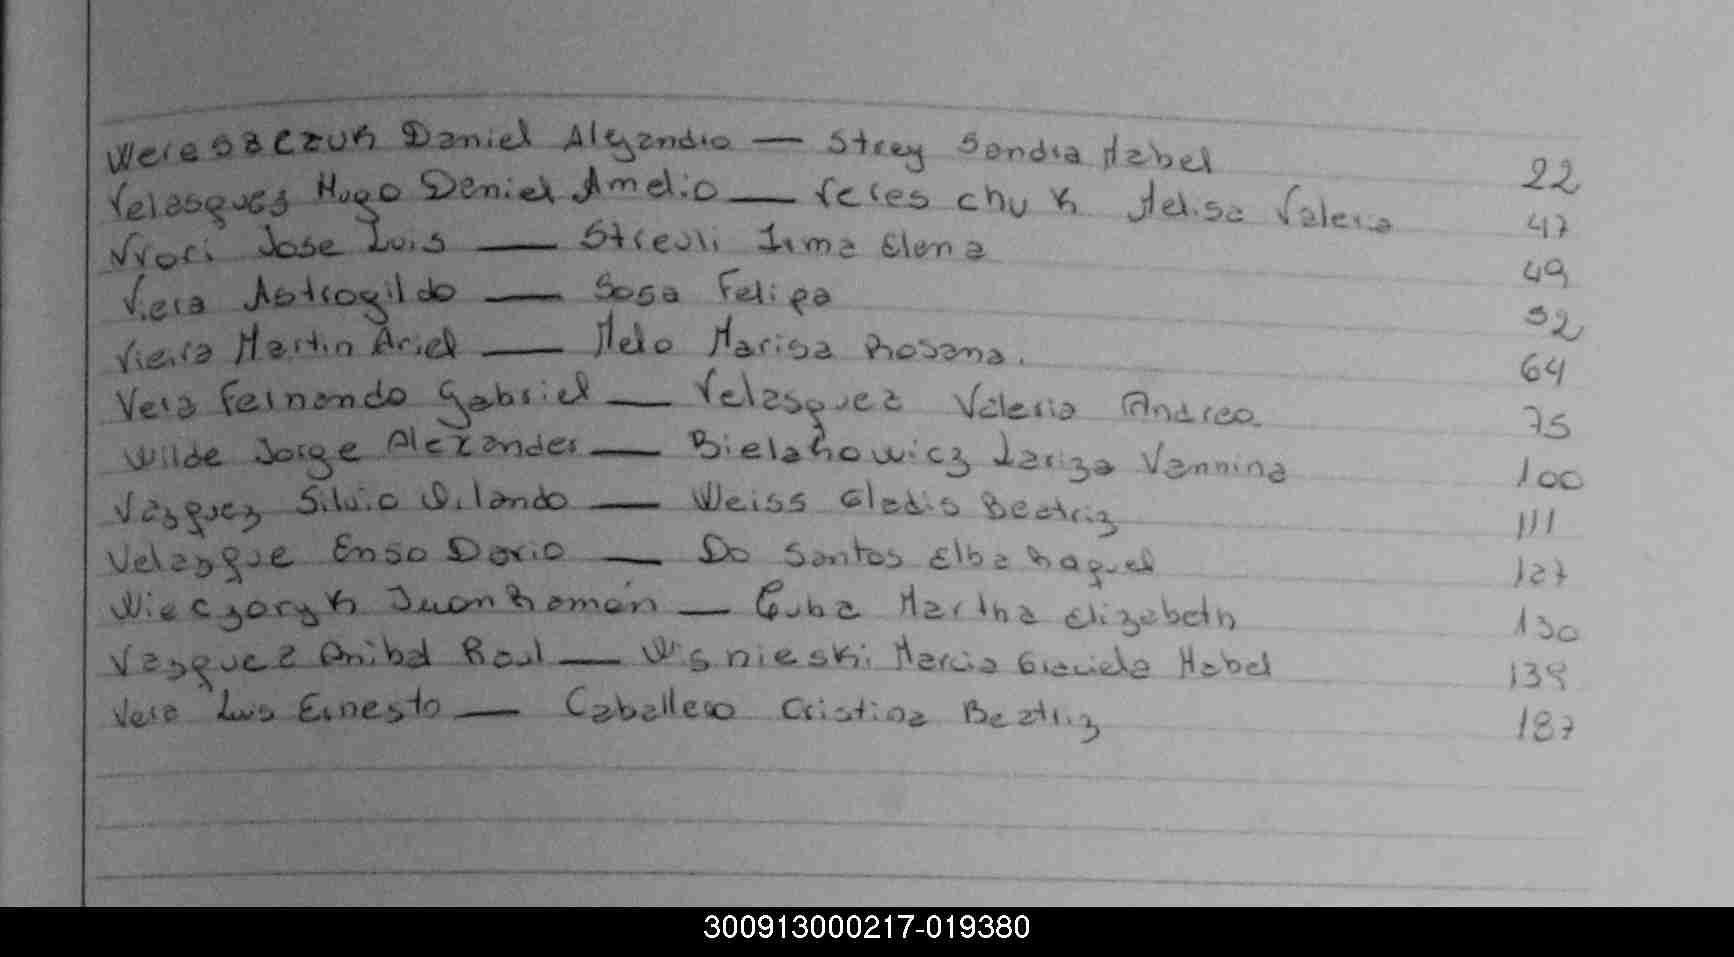 Weresaczuk Daniel Alejandro — Strey Sandra Mabel 22
Velasquez Hugo Daniel Amelio — Tereschuk Melisa Valeria 47
José Luis — Streuli Irma Elena 49
Viera Astrogildo — Sosa Felipa 52
Vieira Martin Ariel — Melo Marisa Rosana. 64
Vera Fernando Gabriel — Velasquez Valeria Andrea 75
Wilde Jorge Alexander — Bielakowicz Lariza Vannina 100
Vazquez Silvio Orlando — Weiss Gladis Beatriz 111
Velazque Enso Dario — Do Santos Elba Raquel 127
Wieczoryk Juan Ramón — Cuba Martha Elizabeth 130
Vazquez Anibal Raul — Wisnieski Marcia Graciela Mabel 139
Vera Luis Ernesto — Caballero Cristina Beatriz 187
300913000217-019380